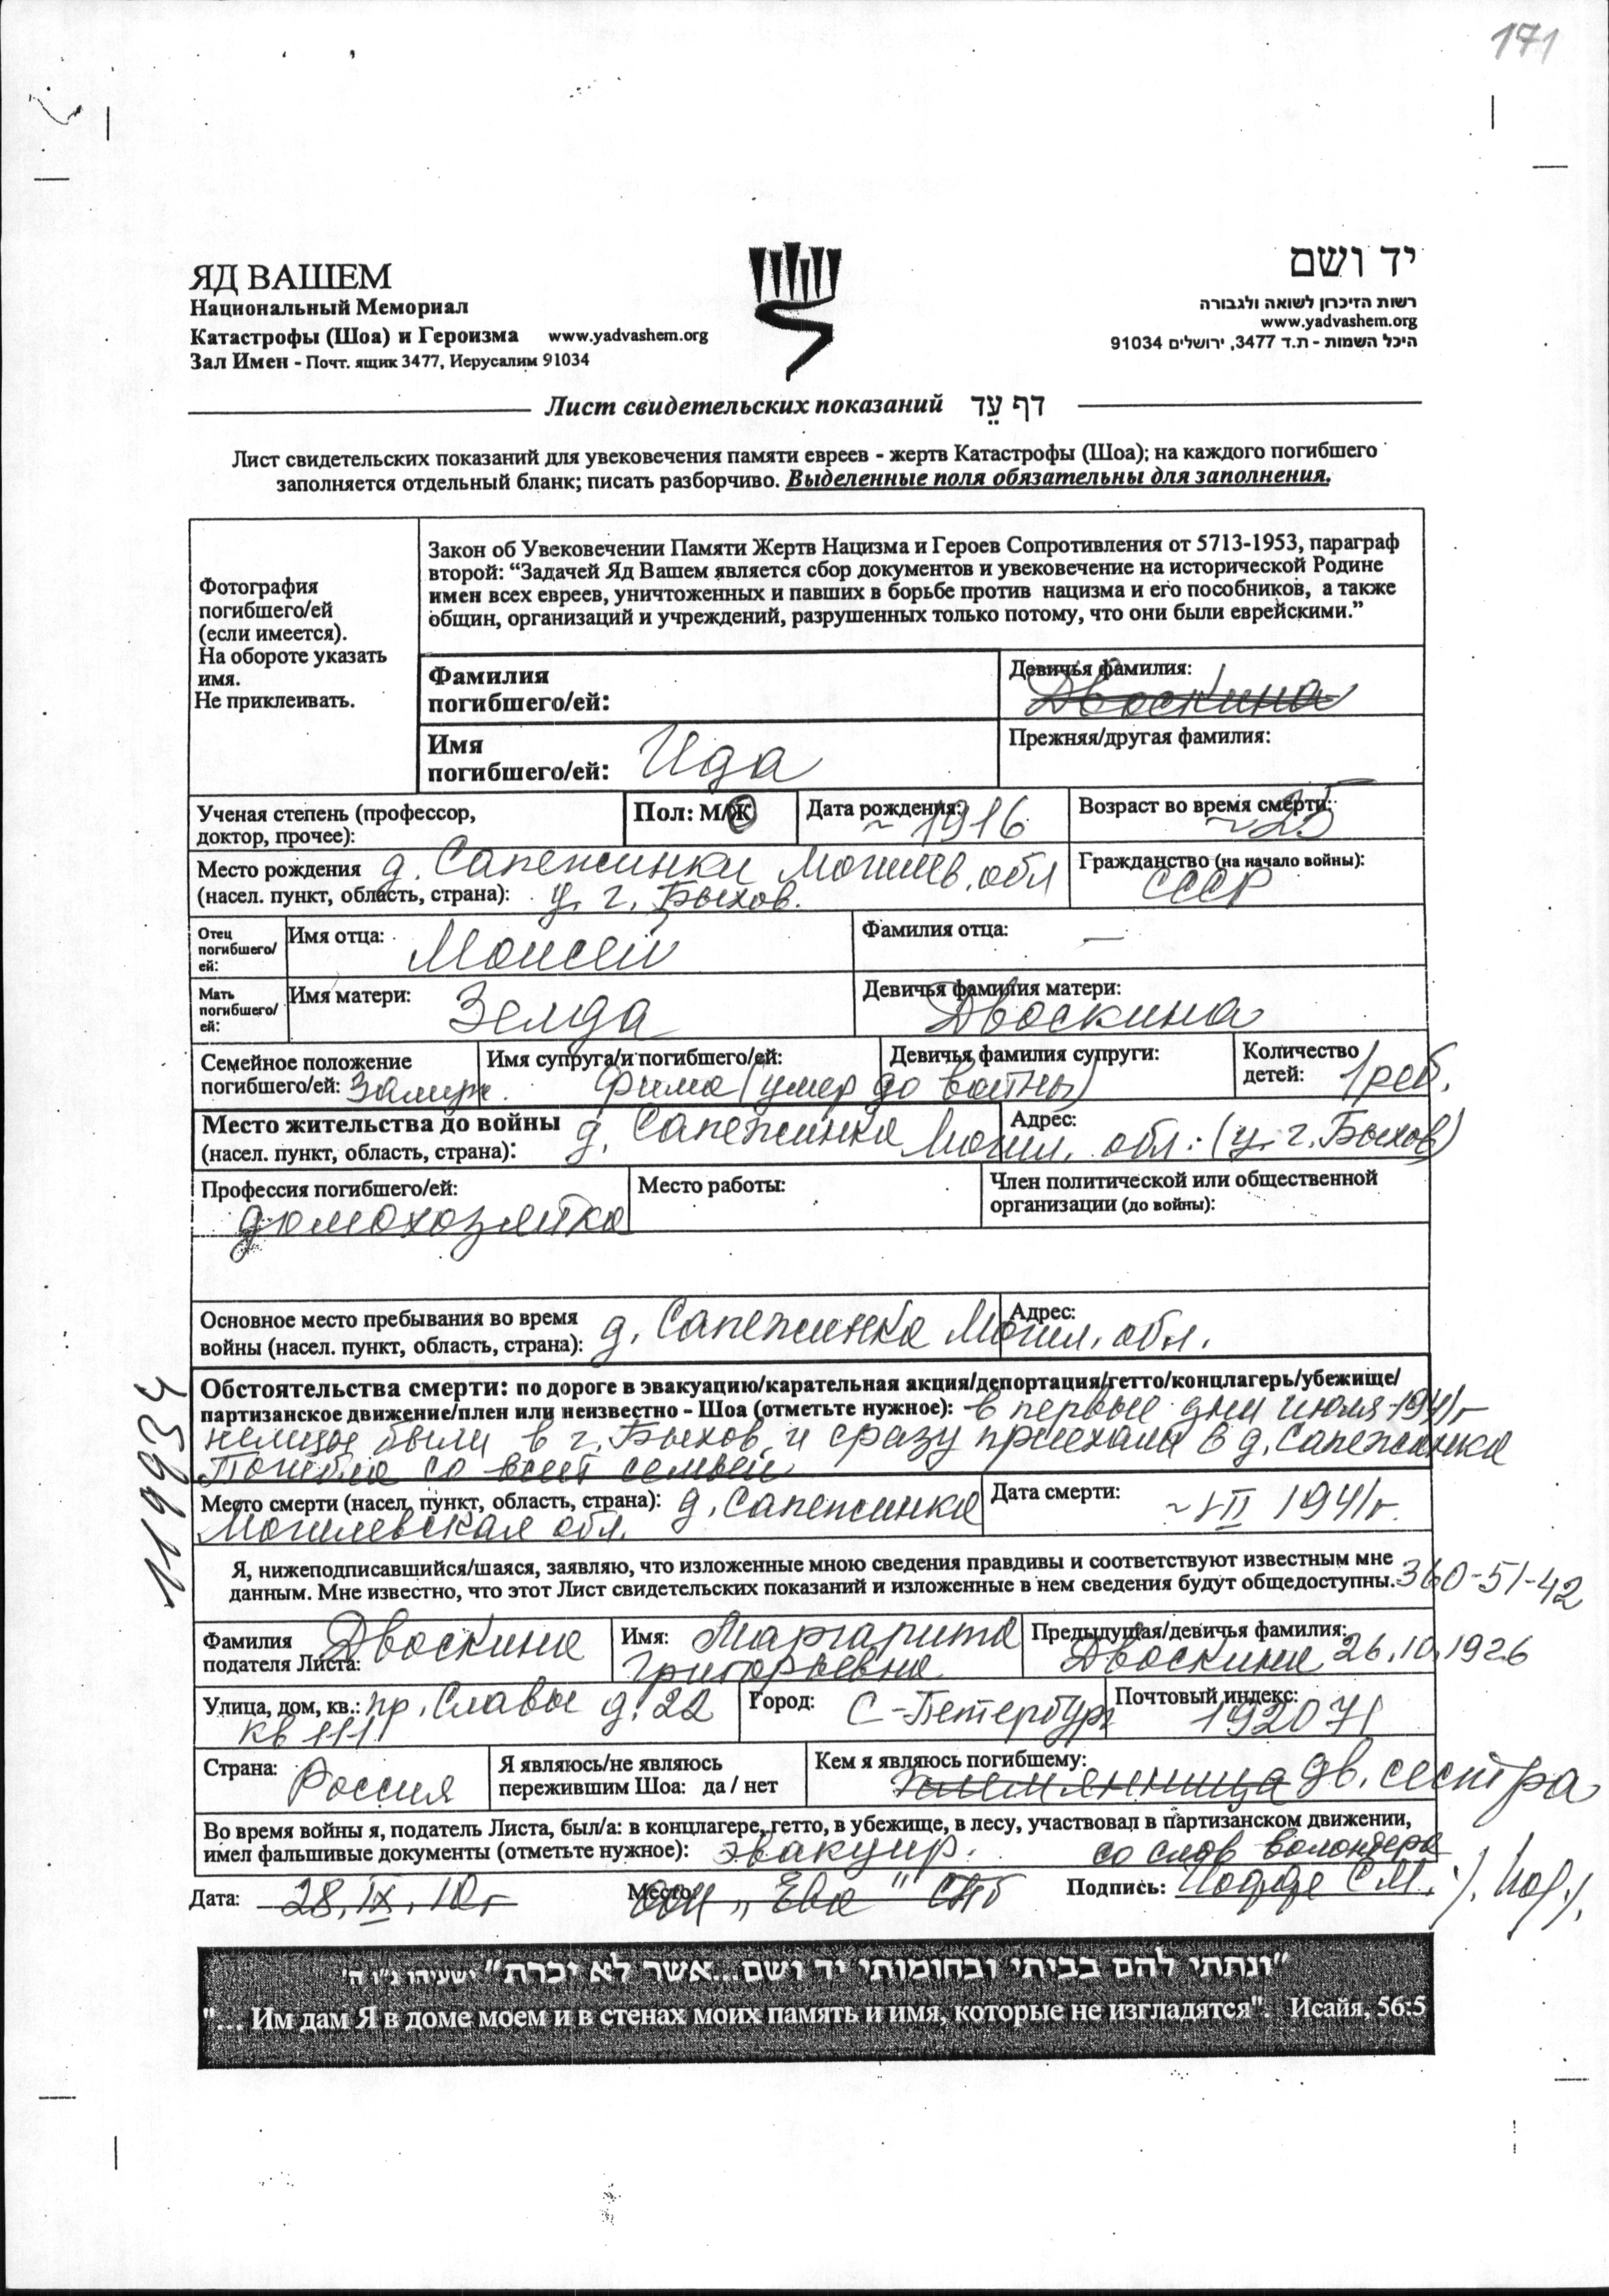 171
ЯД ВАШЕМ
Национальный Мемориал
Катастрофы (Шоа) и Героизма www.yadvashem.org
Зал Имен - Почт. ящик 3477, Иерусалим 91034
יד ושם
רשות הזיכרון לשואה ולגבורה
www.yadvashem.org
היכל השמות - ת.ד 3477, ירושלים 91034
Лист свидетельских показаний דף עֵד
Лист свидетельских показаний для увековечения памяти евреев - жертв Катастрофы (Шоа); на каждого погибшего
заполняется отдельный бланк; писать разборчиво. Выделенные поля обязательны для заполнения.
Фотография
погибшего/ей
(если имеется).
На обороте указать
имя.
Не приклеивать.
Закон об Увековечении Памяти Жертв Нацизма и Героев Сопротивления от 5713-1953, параграф
второй: “Задачей Яд Вашем является сбор документов и увековечение на исторической Родине
имен всех евреев, уничтоженных и павших в борьбе против нацизма и его пособников, а также
общин, организаций и учреждений, разрушенных только потому, что они были еврейскими.”
Фамилия
погибшего/ей:
Девичья фамилия:
Двоскина
Имя
погибшего/ей: Ида
Прежняя/другая фамилия:
Ученая степень (профессор,
доктор, прочее):
Пол: М/Ж
Дата рождения:
~ 1916
Возраст во время смерти:
~25
Место рождения д. Сапежинки Могилев. обл
(насел. пункт, область, страна): у. г. Быхов.
Гражданство (на начало войны):
СССР
Отец
погибшего/
ей:
Имя отца: Моисей
Фамилия отца: —
Мать
погибшего/
ей:
Имя матери: Зелда
Девичья фамилия матери:
Двоскина
Семейное положение
погибшего/ей: Замуж.
Имя супруга/и погибшего/ей:
Фима (умер до войны)
Девичья фамилия супруги:
Количество
детей: 1 реб.
Место жительства до войны д. Сапежинка Могил. обл. (у. г. Быхов)
(насел. пункт, область, страна):
Адрес:
Профессия погибшего/ей:
домохозяйка
Место работы:
Член политической или общественной
организации (до войны):
Основное место пребывания во время
войны (насел. пункт, область, страна): д. Сапежинка Могил. обл.
Адрес:
Обстоятельства смерти: по дороге в эвакуацию/карательная акция/депортация/гетто/концлагерь/убежище/
партизанское движение/плен или неизвестно - Шоа (отметьте нужное): - в первые дни июля 1941г
немцы были в г. Быхов и сразу приехали в д. Сапежинка
Погибла со всей семьей
Место смерти (насел. пункт, область, страна): д. Сапежинка
Могилевская обл.
Дата смерти:
1941г.
119934
Я, нижеподписавшийся/шаяся, заявляю, что изложенные мною сведения правдивы и соответствуют известным мне
данным. Мне известно, что этот Лист свидетельских показаний и изложенные в нем сведения будут общедоступны. 360-51-42
Фамилия
подателя Листа: Двоскина
Имя: Маргарита
Григорьевна
Предыдущая/девичья фамилия:
Двоскина 26.10.1926
Улица, дом, кв.: пр. Славы д. 22
кв 111
Город: С-Петербург
Почтовый индекс:
192071
Страна: Россия
Я являюсь/не являюсь
пережившим Шоа: да / нет
Кем я являюсь погибшему:
племянница дв. сестра
Во время войны я, податель Листа, был/а: в концлагере, гетто, в убежище, в лесу, участвовал в партизанском движении,
имел фальшивые документы (отметьте нужное): эвакуир. со слов волонтера
Дата: 28.IX.10г
Место: „Ева“ СПб
Подпись:
"ונתתי להם בביתי ובחומותי יד ושם...אשר לא יכרת" ישעיהו נ"ו ה'
"... Им дам Я в доме моем и в стенах моих память и имя, которые не изгладятся". Исайя, 56:5